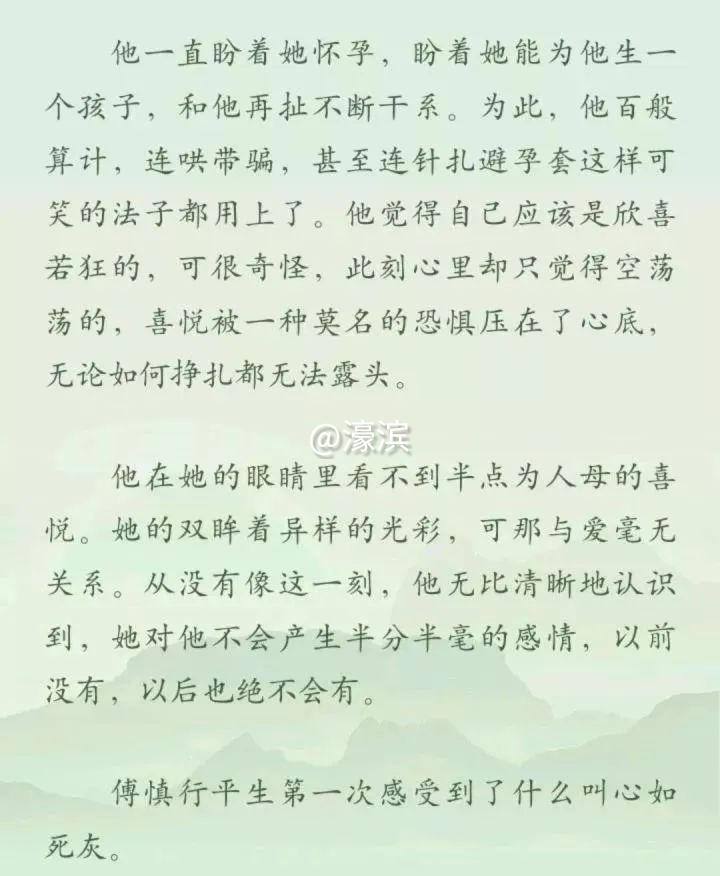 他一直盼着她怀孕，盼着她能为他生一
个孩子，和他再扯不断干系。为此，他百般
算计，连哄带骗，甚至连针扎避孕套这样可
笑的法子都用上了。他觉得自己应该是欣喜
若狂的，可很奇怪，此刻心里却只觉得空荡
荡的，喜悦被一种莫名的恐惧压在了心底，
无论如何挣扎都无法露头。
@濠滨
他在她的眼睛里看不到半点为人母的喜
悦。她的双眸着异样的光彩，可那与爱毫无
关系。从没有像这一刻，他无比清晰地认识
到，她对他不会产生半分半毫的感情，以前
没有，以后也绝不会有。
傅慎行平生第一次感受到了什么叫心如
死灰。